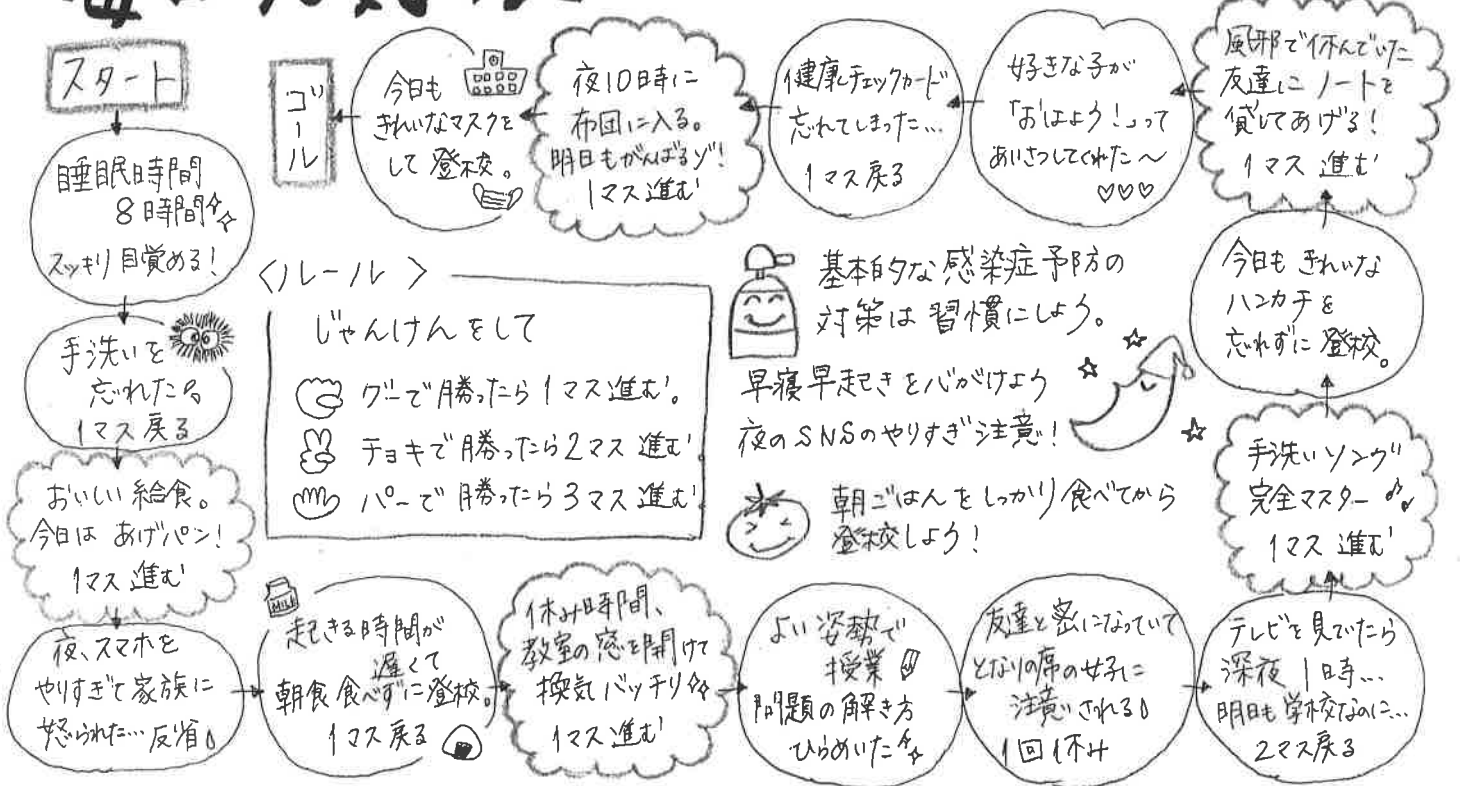 スタート
睡眠時間
8時間
スッキリ目覚める!
手洗いを
忘れた
1マス戻る
おいしい給食。
今日はあげパン!
1マス進む
夜、スマホを
やりすぎて家族に
怒られた…反省
MILK
起きる時間が
遅くて
朝食食べずに登校。
1マス戻る
休み時間、
教室の窓を開けて
換気バッチリ
1マス進む
よい姿勢で
授業
問題の解き方
ひらめいた
友達と密になっていて
となりの席の女子に
注意される
1回休み
テレビを見ていたら
深夜1時…
明日も学校なのに…
2マス戻る
手洗いソング
完全マスター♪
1マス進む
今日もきれいな
ハンカチを
忘れずに登校。
風邪で休んでいた
友達にノートを
貸してあげる!
1マス進む
好きな子が
「おはよう!」って
あいさつしてくれた〜
♡♡♡
健康チェックカード
忘れてしまった…
1マス戻る
夜10時に
布団に入る。
明日もがんばるゾ!
1マス進む
今日も
きれいなマスクを
して登校。
ゴール
〈ルール〉
じゃんけんをして
グーで勝ったら1マス進む。
チョキで勝ったら2マス進む。
パーで勝ったら3マス進む
基本的な感染症予防の
対策は習慣にしよう。
早寝早起きを心がけよう
夜のSNSのやりすぎ注意!
朝ごはんをしっかり食べてから
登校しよう!